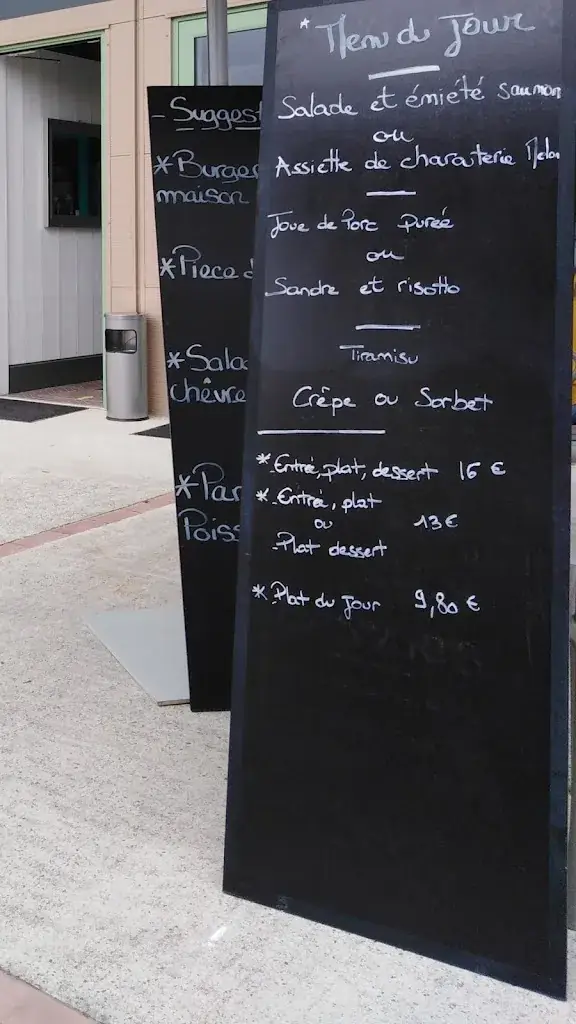 * Menu du Jour
Salade et émiété saumon
ou
Assiette de charcuterie Melon
Joue de Porc Purée
ou
Sandre et risotto
Tiramisu
Crêpe ou Sorbet
* - Entrée, plat, dessert 16 €
* - Entrée, plat
ou 13 €
- Plat dessert
* - Plat du Jour 9,80 €
- Suggest
* Burger
maison
* Piece
* Sala
chèvre
* Par
Poiss